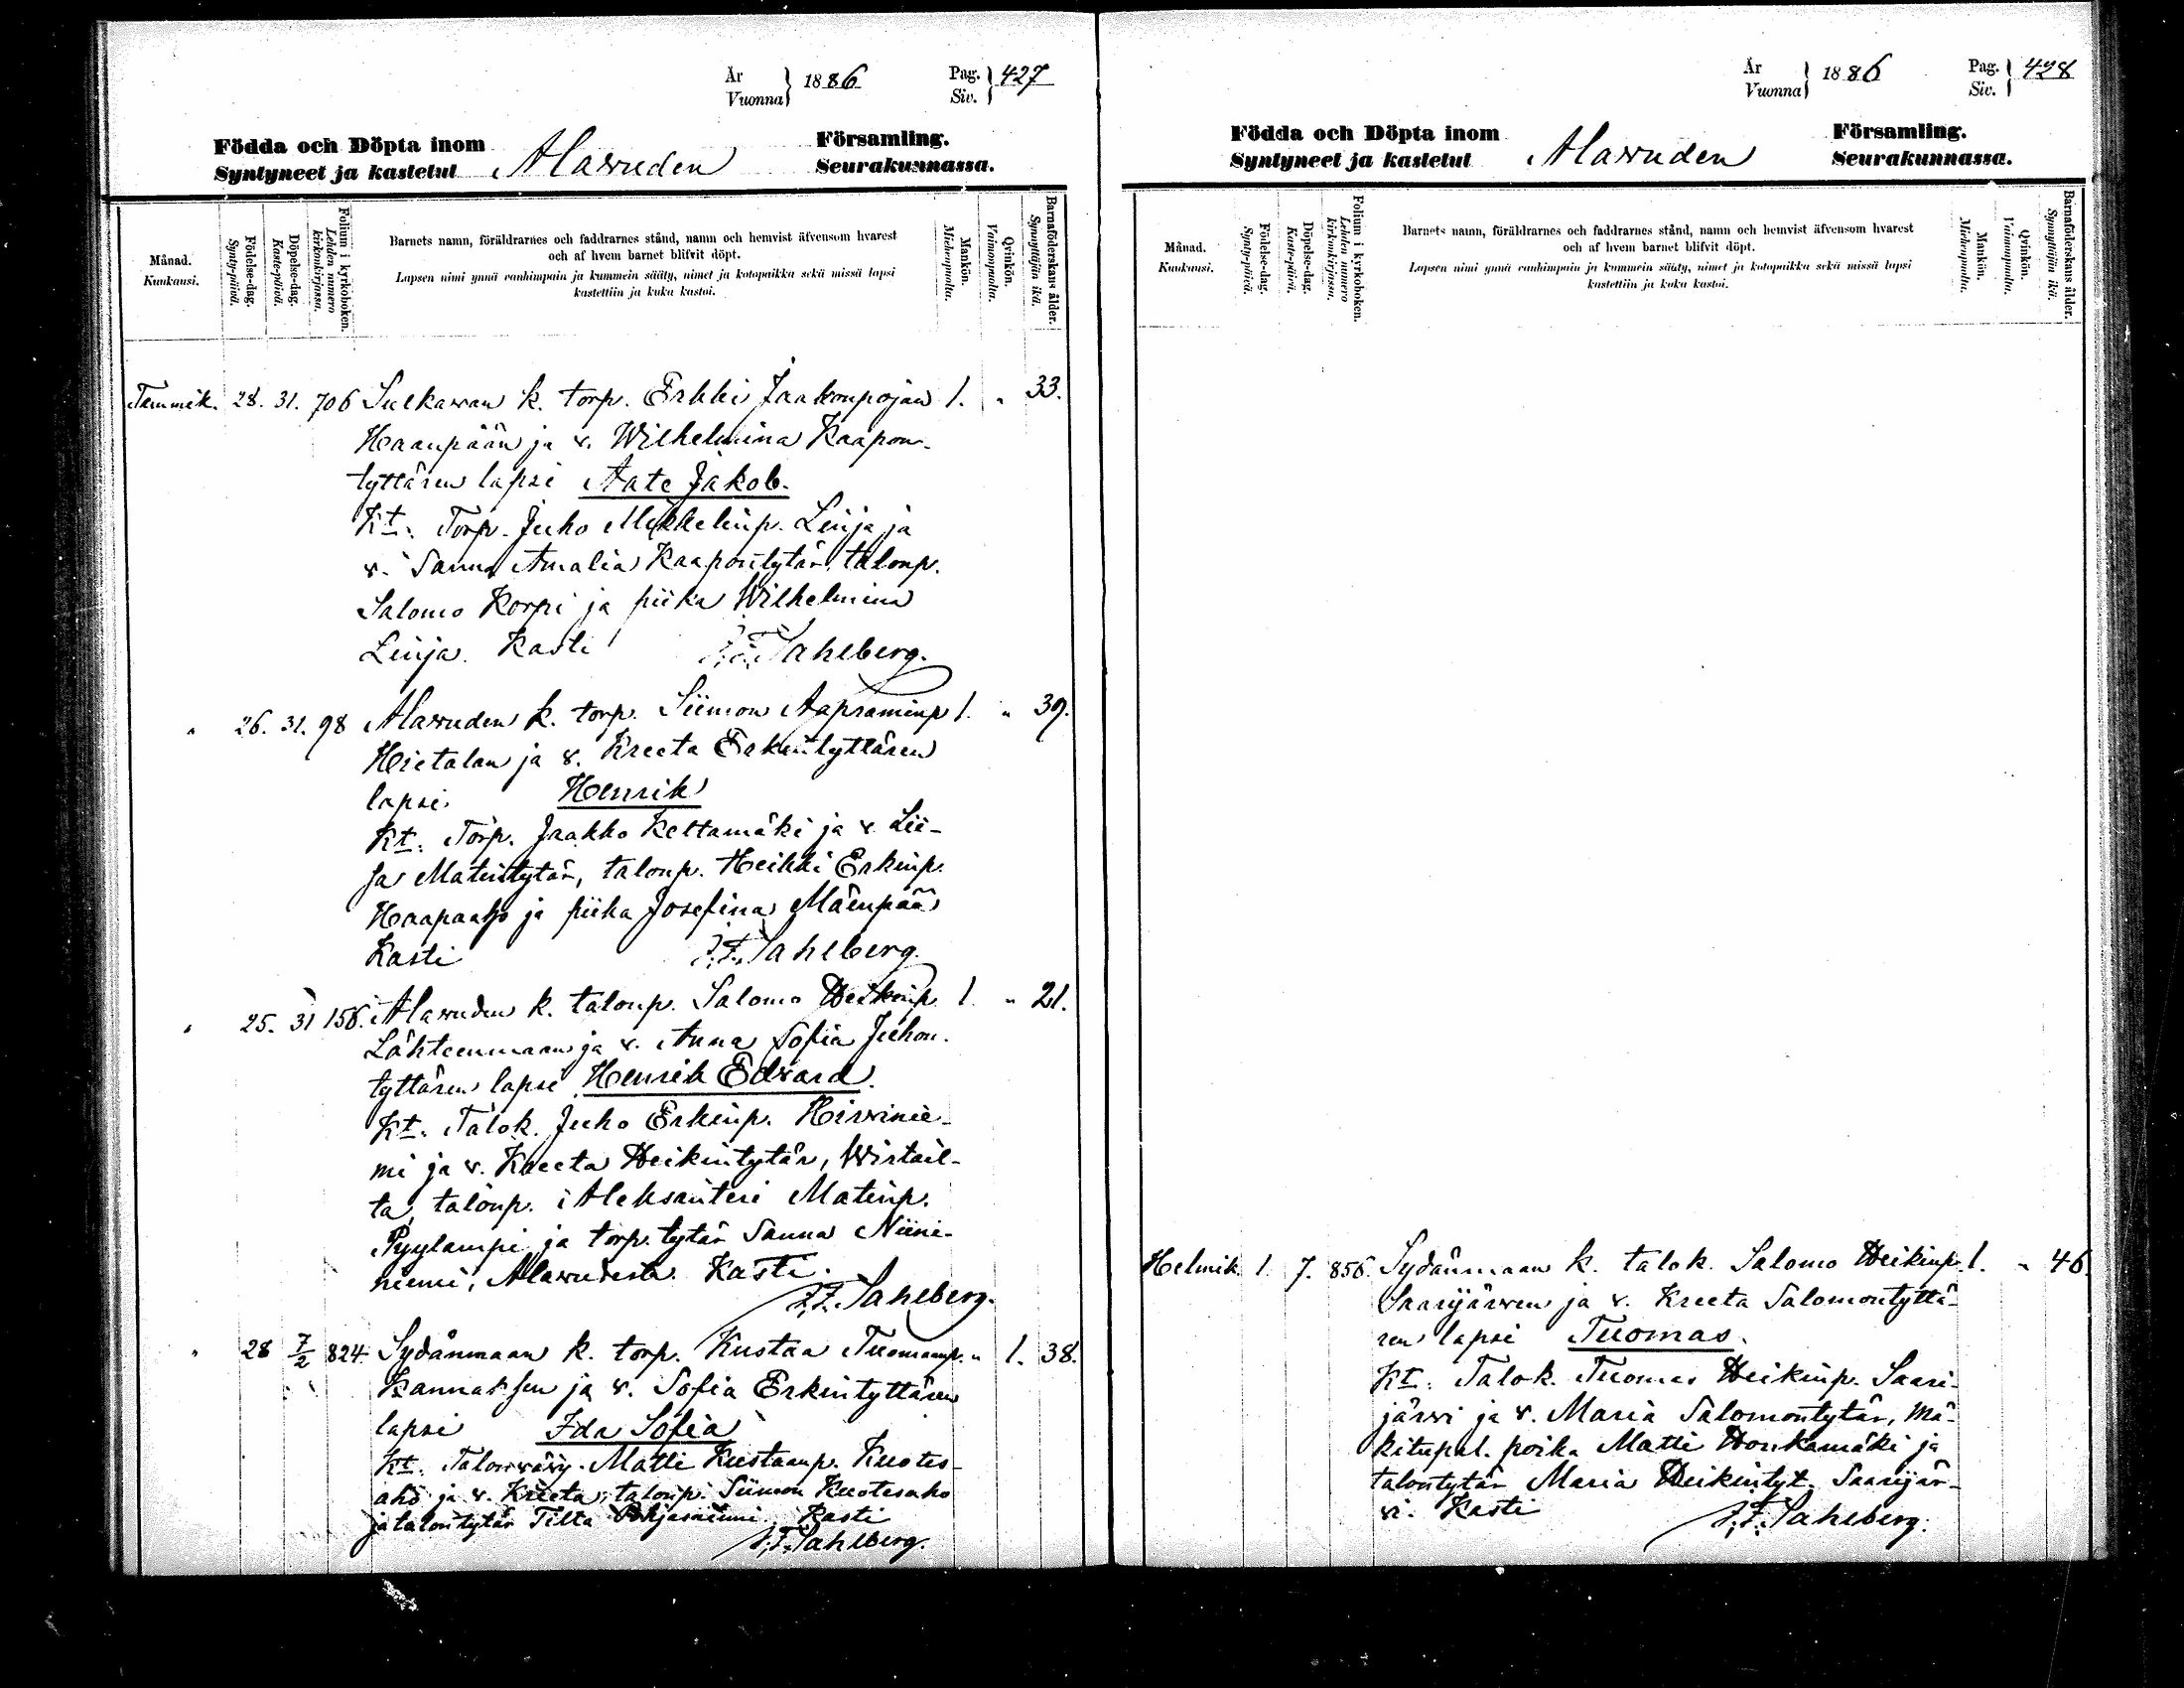 År
Vuonna } 1886
Pag.
Siv. } 427
Födda och Döpta inom
Syntyneet ja kastetut
Alavuden
Församling.
Seurakunnassa.
Månad.
Kuukausi.
Födelse-dag.
Synty-päivä.
Döpelse-dag.
Kaste-päivä.
Folium i kyrkoboken.
Lehden numero
kirkonkirjassa.
Barnets namn, föräldrarnes och faddrarnes stånd, namn och hemvist äfvensom hvarest
och af hvem barnet blifvit döpt.
Lapsen nimi ynnä vanhimpain ja kummein sääty, nimet ja kotopaikka sekä missä lapsi
kastettiin ja kuka kastoi.
Mankön.
Miehenpuolta.
Qvinkön.
Vaimonpuolta.
Barnaföderskans ålder.
Synnyttäjän ikä.
Tammik. 28. 31. 706 Sulkavan k. torp. Erkki Jaakonpojan 1. " 33.
Haanpään ja v. Wilhelmina Kaapon-
tyttären lapsi Aate Jakob.
Kt: Torp. Juho Mikkelinp. Linja ja
v. Sanna Amalia Kaapontytär, talonp.
Salomo Korpi ja piika Wilhelmina
Linja. Kasti J.F. Sahlberg.
" 26. 31. 98 Alavuden k. torp. Siimon Aapraminp 1. " 39.
Hietalan ja v. Kreeta Erkintyttären
lapsi Henrik
Kt: Torp. Jaakko Keltamäki ja v. Lii-
sa Matintytär, talonp. Heikki Erkinp.
Haapaaho ja piika Josefina Mäenpää
Kasti J.F. Sahlberg.
" 25. 31 156. Alavuden k. talonp. Salomo Heikinp. 1. " 21.
Lähteenmaan ja v. Anna Sofia Juhon-
tyttären lapsi Henrik Edvard.
Kt: Talok. Juho Erkinp. Hirvinie-
mi ja v. Kreeta Heikintytär, Wirtail-
ta, talonp. Aleksanteri Matinp.
Pyylampi ja torp. tytär Sanna Niini-
niemi, Alavudesta. Kasti.
J.F. Sahlberg.
" 28 7/2 824. Sydänmaan k. torp. Kustaa Tuomaanp. " 1. 38.
Kannaksen ja v. Sofia Erkintyttären
lapsi Ida Sofia
Kt: Talonvävy Matti Kustaanp. Kuotes-
aho ja v. Kreeta, talonp. Siimon Kuotesaho
ja talontytär Tilta Pohjasniemi. Kasti
J.F. Sahlberg.
År
Vuonna } 1886
Pag.
Siv. } 428
Födda och Döpta inom
Syntyneet ja kastetut
Alavuden
Församling.
Seurakunnassa.
Månad.
Kuukausi.
Födelse-dag.
Synty-päivä.
Döpelse-dag.
Kaste-päivä.
Folium i kyrkoboken.
Lehden numero
kirkonkirjassa.
Barnets namn, föräldrarnes och faddrarnes stånd, namn och hemvist äfvensom hvarest
och af hvem barnet blifvit döpt.
Lapsen nimi ynnä vanhimpain ja kummein sääty, nimet ja kotopaikka sekä missä lapsi
kastettiin ja kuka kastoi.
Mankön.
Miehenpuolta.
Qvinkön.
Vaimonpuolta.
Barnaföderskans ålder.
Synnyttäjän ikä.
Helmik 1. 7. 856. Sydänmaan k. talok. Salomo Heikinp. 1. " 46.
Saarijärven ja v. Kreeta Salomontyttä-
ren lapsi Tuomas.
Kt: Talok. Tuomas Heikinp. Saari-
järvi ja v. Maria Salomontytär, mä-
kitupal. poika Matti Honkamäki ja
talontytär Maria Heikintyt. Saarijär-
vi. Kasti J.F. Sahlberg.